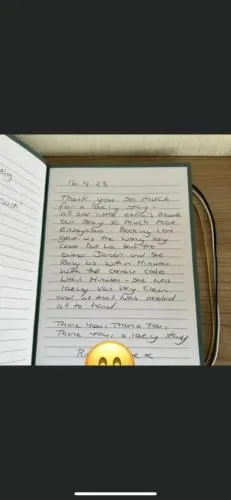 16.9.23
Thank you so much
for a lovely stay -
all the little extra's made
our stay so much more
enjoyable Booking.com
gave us the wrong key
code but we text the
owner Janeen and she
Rang us within minutes
with the correct code
within minutes - she was
lovely Van very clean
and all that was needed
all to hand
Thank you, Thank you,
Thank you, a lovely stay
x
much